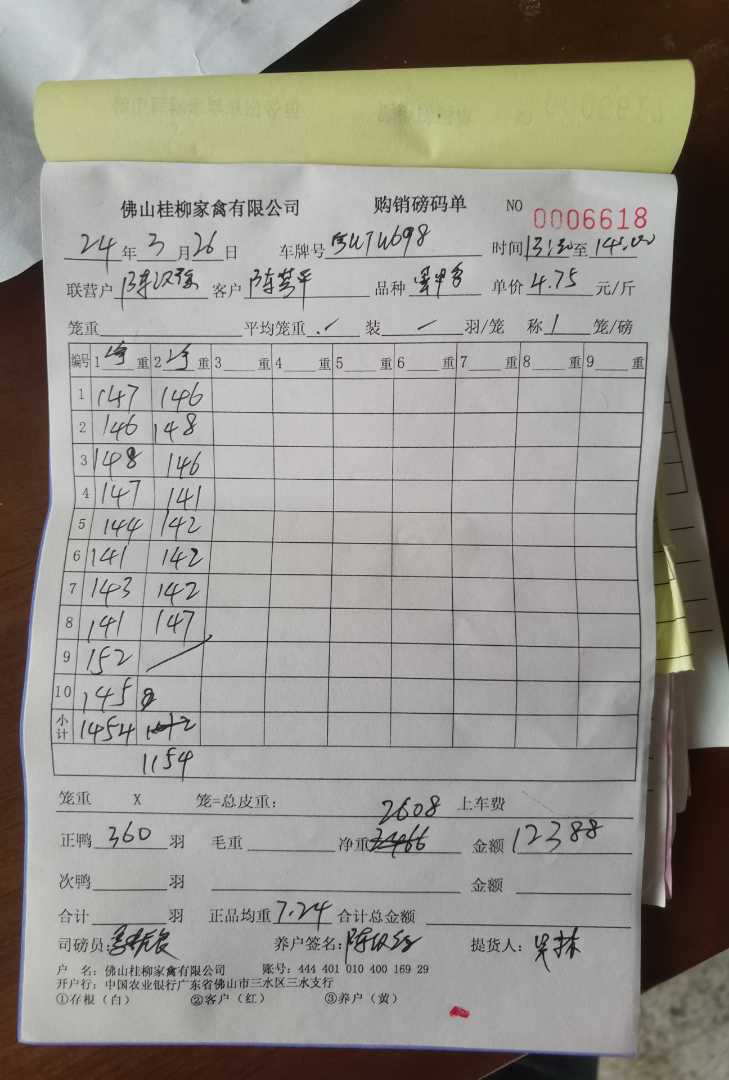 佛山桂柳家禽有限公司 购销磅码单 NO 0006618
24年3月26日 车牌号 698 时间 至14:00
联营户 陈汉 客户 陈 平 品种 单价4.75元/斤
笼重 平均笼重 / 装 / 羽/笼 称1笼/磅
编号 1 重 2 重 3 重 4 重 5 重 6 重 7 重 8 重 9 重
1 147 146
2 146 148
3 148 146
4 147 141
5 144 142
6 141 142
7 143 142
8 141 147
9 152 /
10 145
小计 1454
1154
笼重 X 笼=总皮重: 2608 上车费
正鸭360羽 毛重 净重 金额12388
次鸭 羽 金额
合计 羽 正品均重7.24 合计总金额
司磅员: 养户签名:陈汉 提货人:
户 名:佛山桂柳家禽有限公司 账号:444 401 010 400 169 29
开户行:中国农业银行广东省佛山市三水区三水支行
①存根(白) ②客户(红) ③养户(黄)